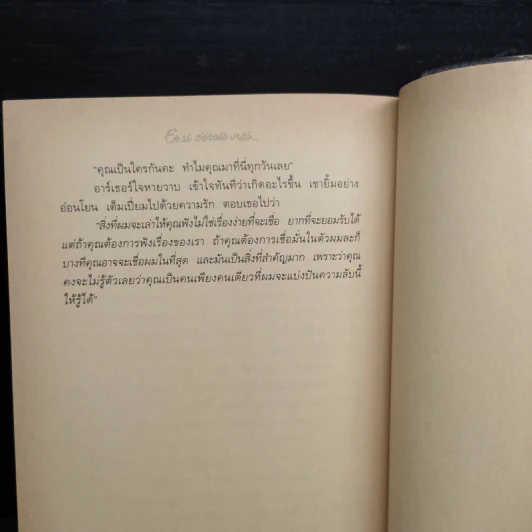 Et si c'était vrai...
"คุณเป็นใครกันคะ ทำไมคุณมาที่นี่ทุกวันเลย"
อาร์เธอร์ใจหายวาบ เข้าใจทันทีว่าเกิดอะไรขึ้น เขายิ้มอย่าง
อ่อนโยน เต็มเปี่ยมไปด้วยความรัก ตอบเธอไปว่า
"สิ่งที่ผมจะเล่าให้คุณฟังไม่ใช่เรื่องง่ายที่จะเชื่อ ยากที่จะยอมรับได้
แต่ถ้าคุณต้องการฟังเรื่องของเรา ถ้าคุณต้องการเชื่อมั่นในตัวผมละก็
บางทีคุณอาจจะเชื่อผมในที่สุด และมันเป็นสิ่งที่สำคัญมาก เพราะว่าคุณ
คงจะไม่รู้ตัวเลยว่าคุณเป็นคนเพียงคนเดียวที่ผมจะแบ่งปันความลับนี้
ให้รู้ได้"